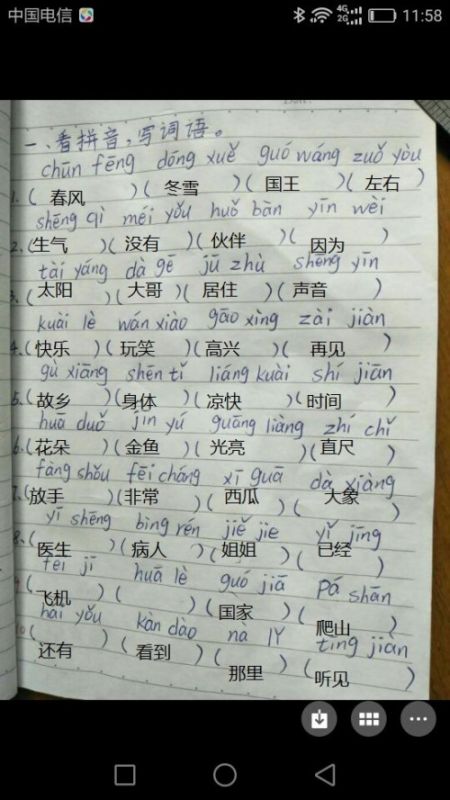 中国电信 4G 2G 11:58
一、看拼音,写词语。
chūn fēng dōng xuě guó wáng zuǒ yòu
1.( 春风 )( 冬雪 )( 国王 )( 左右 )
shēng qì méi yǒu huǒ bàn yīn wèi
2.(生气 )( 没有 )( 伙伴 )( 因为 )
tài yáng dà gē jū zhù shēng yīn
3.(太阳 )( 大哥 )( 居住 )( 声音 )
kuài lè wán xiào gāo xìng zài jiàn
4.(快乐 )( 玩笑 )( 高兴 )( 再见 )
gù xiāng shēn tǐ liáng kuài shí jiān
5.(故乡 )(身体 )( 凉快 )( 时间 )
huā duǒ jīn yú guāng liàng zhí chǐ
6.(花朵 )( 金鱼 )( 光亮 )( 直尺 )
fàng shǒu fēi cháng xī guā dà xiàng
7.(放手 )(非常 )( 西瓜 )( 大象 )
yī shēng bìng rén jiě jie yǐ jīng
8.( 医生 )( 病人 )( 姐姐 )( 已经 )
fēi jī huā lè guó jiā Pá shān
9.( 飞机 )( )( 国家 )( 爬山 )
hái yǒu kàn dào nà lǐ tīng jiàn
10.( 还有 )( 看到 )( 那里 )( 听见 )